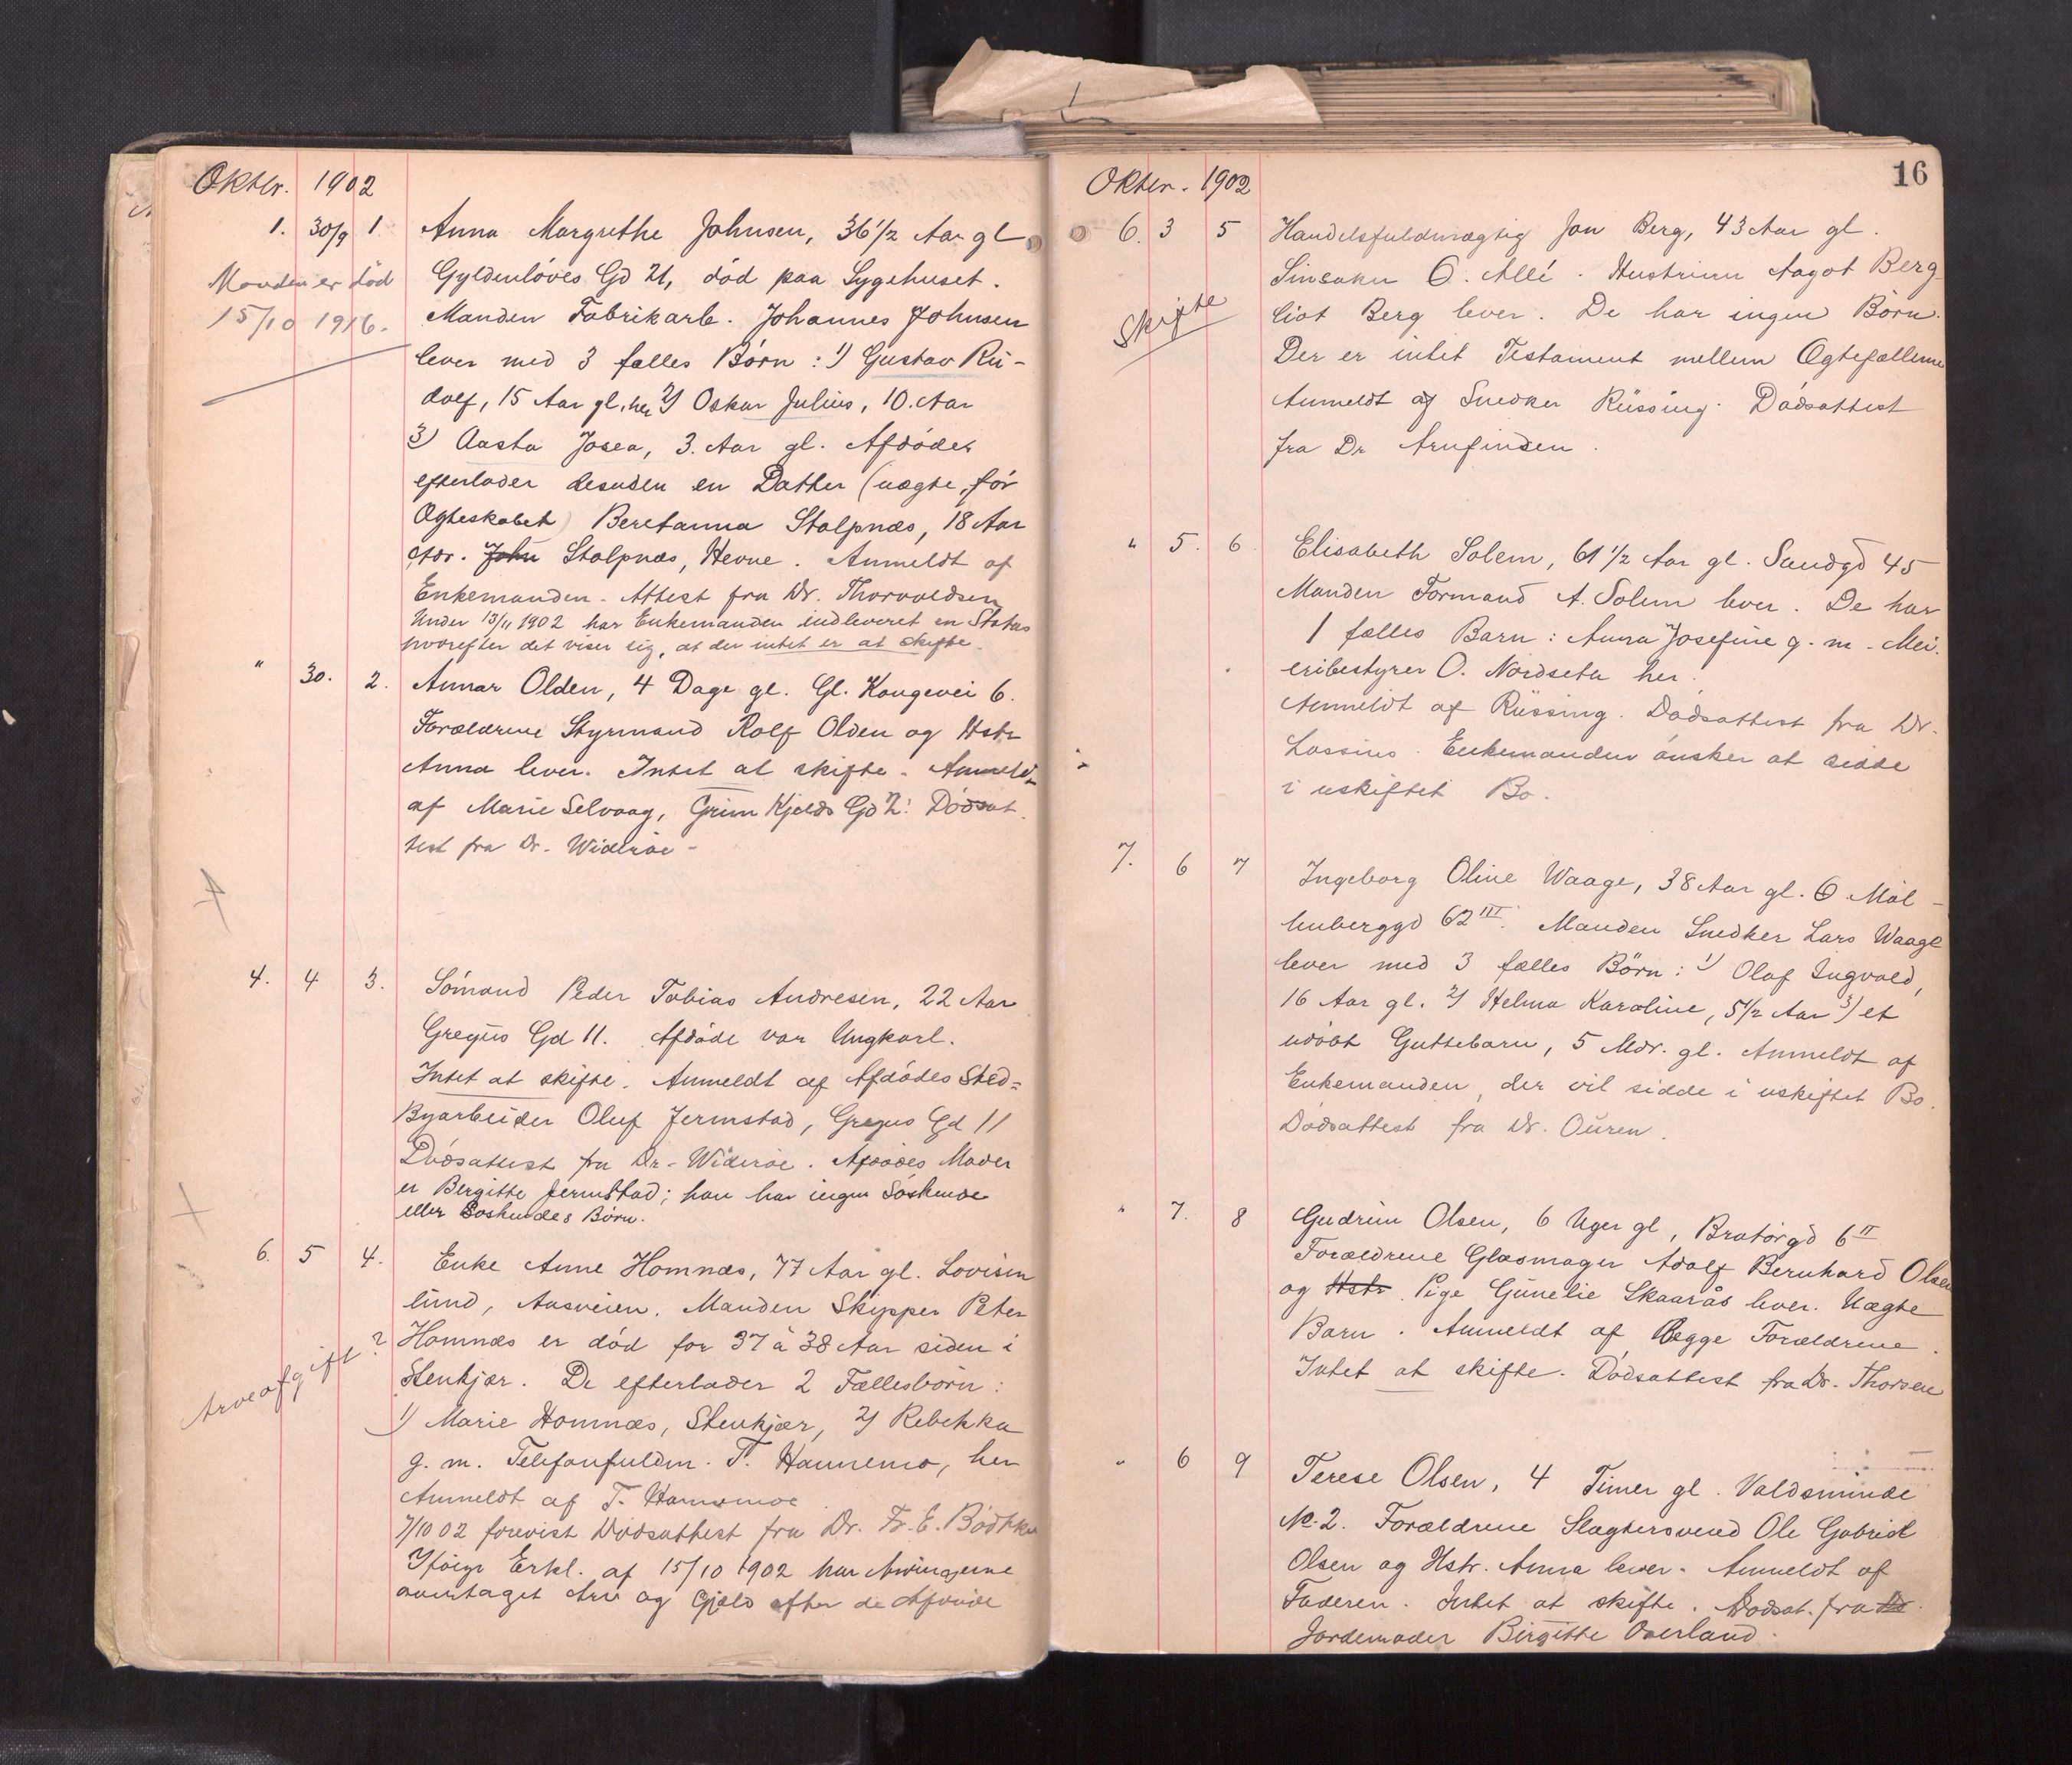 Oktbr. 1902
1. 30/9 1 Anna Margrethe Johnsen, 36 1/2 Aar gl
Manden er død
15/10 1916.
Gyldenløves Gd 21, død paa Sygehuset.
Manden Fabrikarb. Johannes Johnsen
lever med 3 fælles Børn: 1) Gustav Ru-
dolf, 15 Aar gl. her 2) Oskar Julius, 10 Aar
3) Aasta Josea, 3 Aar gl. Afdødes
efterlader desuden en Datter (uægte, før
Ægteskabet) Beretanna Stolpnæs, 18 Aar
Adr. John Stolpnæs, Hevne. Anmeldt af
Enkemanden. Attest fra Dr. Thorvaldsen
Under 13/11 1902 har Enkemanden indleveret en Status
hvorefter det viser sig, at der intet er at skifte.
" 30. 2. Annar Olden, 4 Dage gl. Gl. Kongevei 6.
Forældrene Styrmand Rolf Olden og Hstr
Anna lever. Intet at skifte. Anmeldt
af Marie Selvaag, Grim Kjelds Gd 2. Dødsat
test fra Dr. Widerøe -
4. 4 3. Sømand Peder Tobias Andresen, 22 Aar
Gregus Gd 11. Afdøde var Ungkarl.
Intet at skifte. Anmeldt af Afdødes Sted=
Byarbeider Oluf Jermstad, Gregus Gd 11
Dødsattest fra Dr. Widerøe. Afdødes Moder
er Bergitte Jermstad; han har ingen Søskende
eller Søskendes Børn.
6. 5 4. Enke Anne Homnæs, 77 Aar gl. Lovisen
lund, Aasveien. Manden Skipper Peter
Arveafgift? Homnæs er død for 37 à 38 Aar siden i
Stenkjær. De efterlader 2 Fællesbørn:
1) Marie Homnæs, Stenkjær, 2) Rebekka
g. m. Telefonfuldm. T. Hannemo, her
Anmeldt af T. Hannemo
7/10 02 forevist Dødsattest fra Dr. Fr. E. Bødtker
Ifølge Erkl. af 15/10 1902 har Arvingerne
overtaget Arv og Gjæld efter de Afdøde
16
Oktbr. 1902
6. 3 5 Handelsfuldmægtig Jon Berg, 43 Aar gl.
Skifte
Sinsaker Ø. Allé. Hustruen Aagot Berg-
liot Berg lever. De har ingen Børn.
Der er intet Testament mellem Ægtefællerne
Anmeldt af Snedker Rüssing. Dødsattest
fra Dr Arnfinsen.
" 5. 6. Elisabeth Solem, 61 1/2 Aar gl. Sandgd 45
Manden Formand A. Solem lever. De har
1 fælles Barn: Anna Josefine g. m. Mei.
eribestyrer O. Nordseth her.
Anmeldt af Rüssing. Dødsattest fra Dr.
Lossius. Enkemanden ønsker at sidde
i uskiftet Bo.
7. 6 7 Ingeborg Oline Waage, 38 Aar gl. Ø. Møl-
lenberggd 62 III. Manden Snedker Lars Waage
lever med 3 fælles Børn: 1) Olaf Ingvald,
16 Aar gl. 2) Helma Karoline, 5 1/2 Aar 3) et
udøbt Guttebarn, 5 Mdr. gl. Anmeldt af
Enkemanden, der vil sidde i uskiftet Bo.
Dødsattest fra Dr. Ouren.
" 7. 8 Gudrun Olsen, 6 Uger gl, Bratørgd 6 II
Forældrene Glasmager Adolf Bernhard Olsen
og Hstr. Pige Gunelie Skaarås lever. Uægte
Barn. Anmeldt af Begge Forældrene.
Intet at skifte. Dødsattest fra Dr. Thorsen
" 6 9 Terese Olsen, 4 Timer gl. Valdsminde
No. 2. Forældrene Slagtersvend Ole Gabriel
Olsen og Hstr. Anna lever. Anmeldt af
Faderen. Intet at skifte. Dødsat. fra Dr.
Jordemoder Birgitte Overland.